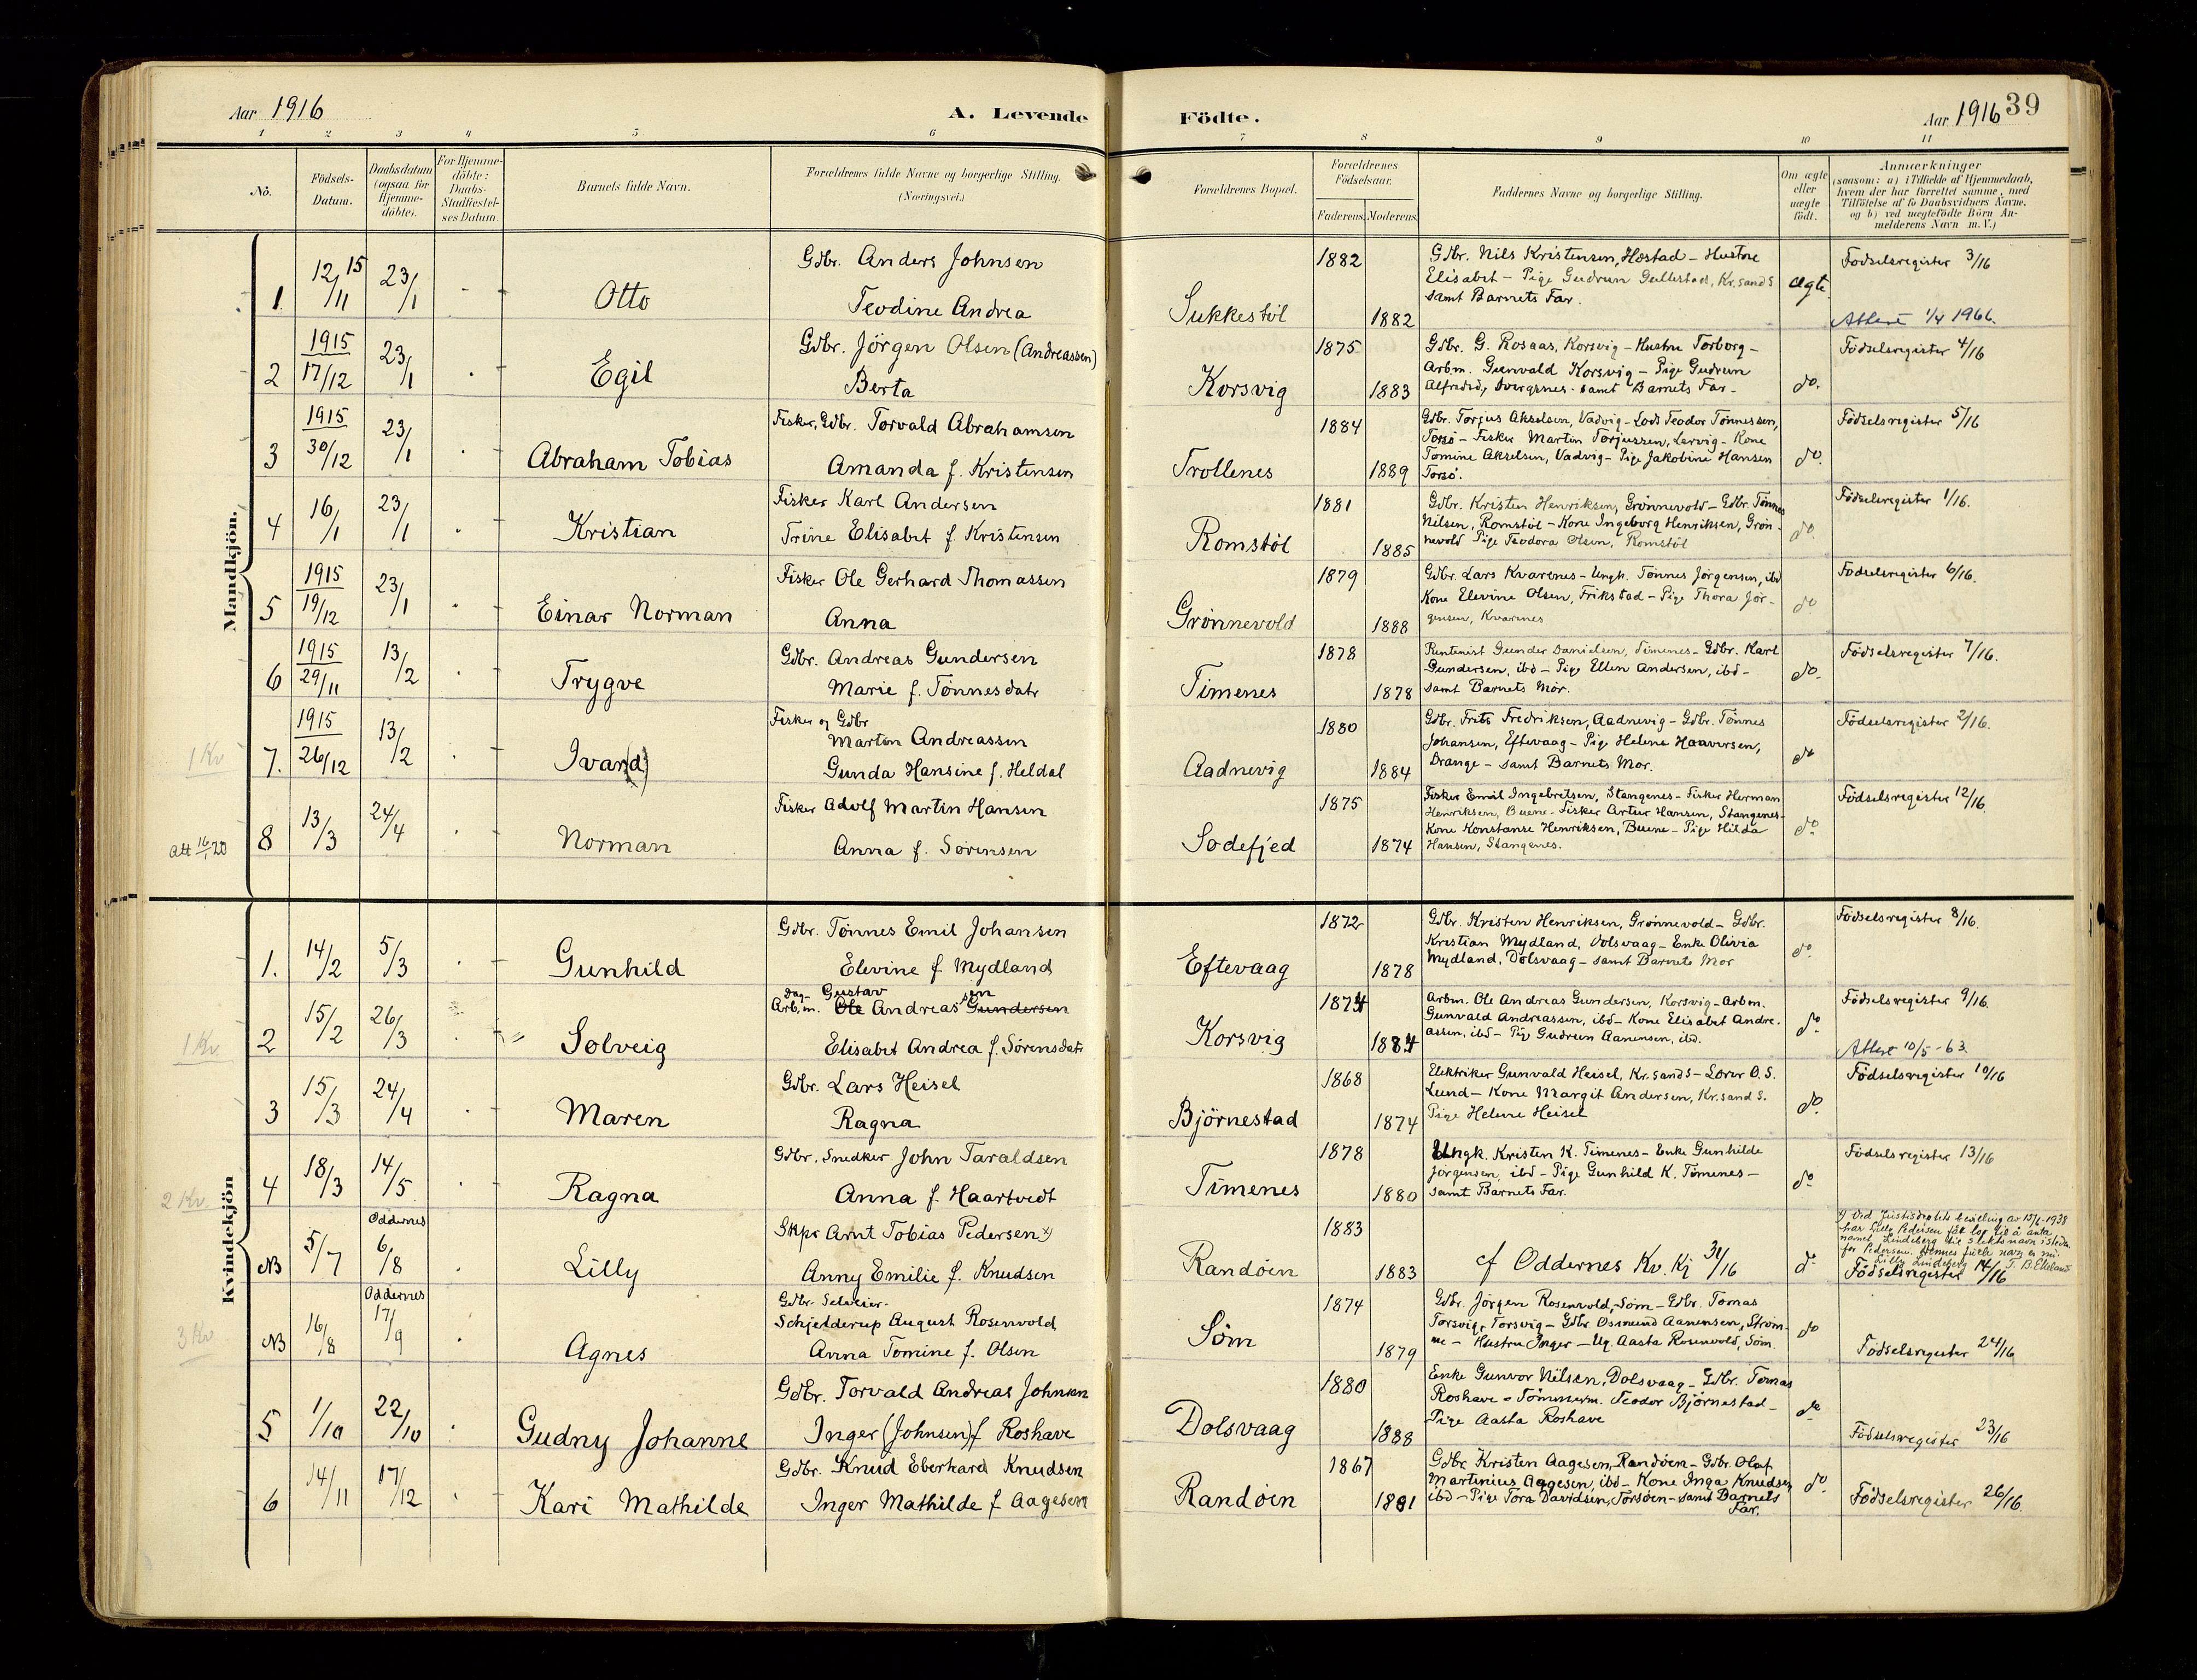 Aar 1916
A. Levende
Födte.
Aar 1916 39
1 2 3 4 5 6 7 8 9 10 11
Nô.
Födsels-Datum.
Daabsdatum (ogsaa for Hjemme-döbte).
For Hjemme-döbte: Daabs-Stadfæstel-ses Datum.
Barnets fulde Navn.
Forældrenes fulde Navne og borgerlige Stilling. (Næringsvei.)
Forældrenes Bopæl.
Forældrenes Födselsaar.
Faderens. Moderens.
Faddernes Navne og borgerlige Stilling.
Om ægte eller uægte födt.
Anmærkninger
(saasom: a) i Tilfælde af Hjemmedaab, hvem der har forrettet samme, med Tilföielse af to Daabsvidners Navne, og b) ved uægtefödte Börn An-melderens Navn m. V.)
Mandkjön.
1. 12/11 15 23/1 - Otto
Gdbr. Anders Johnsen
Teodine Andrea
Sukkestøl 1882 1882
Gdbr. Nils Kristensen, Høstad - Hustru
Elisabet - Pige Gudrun Gullestad, Kr.sand S
samt Barnets Far.
ægte Fødselsregister 3/16
Attest 1/4 1966.
2 1915 17/12 23/1 Egil
Gdbr. Jörgen Olsen (Andreassen)
Berta
Korsvig 1875 1883
Gdbr. G. Rosaas, Korsvig - Hustru Torborg -
Arbm. Gunvald Korsvig - Pige Gudrun
Alfredsd, Dvergsnes - samt Barnets Far -
do. Fødselsregister 4/16
3 1915 30/12 23/1 Abraham Tobias
Fisker, Gdbr. Torvald Abrahamsen
Amanda f. Kristensen
Trollenes 1884 1889
Gdbr. Torjus Akselsen, Vadvig - Lods Teodor Tønnessen,
Torsø - Fisker Martin Torjussen, Larvig - Kone
Tomine Akselsen, Vadvig - Pige Jakobine Hansen
Torsø.
do. Fødselsregister 5/16
4 16/1 23/1 Kristian
Fisker Karl Andersen
Trine Elisabet f. Kristensen
Romstøl 1881 1885
Gdbr. Kristen Henriksen, Grønnevold - Gdbr. Tønnes
Nilsen, Romstøl - Kone Ingeborg Henriksen, Grøn-
nevold Pige Teodora Olsen, Romstøl
do. Fødselsregister 1/16.
5 1915 19/12 23/1 Einar Norman
Fisker Ole Gerhard Thomassen
Anna
Grønnevold 1879 1888
Gdbr. Lars Kvarenes - Ungk. Tønnes Jørgensen, ibd
Kone Elevine Olsen, Frikstad - Pige Thora Jör-
gensen, Kvarenes
do Fødselsregister 6/16.
6 1915 29/11 13/2 Trygve
Gdbr. Andreas Gundersen
Marie f. Tönnesdatr
Timenes 1878 1878
Rentenist Gunder Danielsen, Timenes - Gdbr. Karl
Gundersen, ibd - Pige Ellen Andersen, ibd -
samt Barnets Mor.
do. Fødselsregister 7/16.
1 Kr
7. 1915 26/12 13/2 Ivar(d)
Fisker og Gdbr
Martin Andreassen
Gunda Hansine f. Heldal
Aadnevig 1880 1884
Gdbr. Frits Fredriksen, Aadnevig - Gdbr. Tønnes
Johansen, Eftevaag - Pige Helene Haaversen,
Drange - samt Barnets Mor.
do Fødselsregister 2/16.
Att 16/1 20
8 13/3 24/4 Norman
Fisker Adolf Martin Hansen
Anna f. Sørensen
Sodefjed 1875 1874
Fisker Emil Ingebretsen, Stangenes - Fisker Herman
Henriksen, Buene - Fisker Artur Hansen, Stangenes -
Kone Konstanse Henriksen, Buene - Pige Hilda
Hansen, Stangenes.
do Fødselsregister 12/16.
Kvindekjön
1. 14/2 5/3 Gunhild
Gdbr. Tønnes Emil Johansen
Elevine f. Mydland
Eftevaag 1872 1878
Gdbr. Kristen Henriksen, Grønnevold - Gdbr.
Kristian Mydland, Dolsvaag - Enke Olivia
Mydland, Dolsvaag - samt Barnets Mor
do. Fødselsregister 8/16.
1 Kr
2 15/2 26/3 Solveig
Dag- Gustav sen
Arb.m. Ole Andreas Gundersen
Elisabet Andrea f. Sørensdatr
Korsvig 1874 1884
Arbm. Ole Andreas Gundersen, Korsvig - Arbm.
Gunvald Andreassen, ibd - Kone Elisabet Andre-
assen, ibd - Pige Gudrun Aanensen, ibd.
do Fødselsregister 9/16.
Attest 10/5-63
3 15/3 24/4 Maren
Gdbr. Lars Heisel
Ragna
Bjørnestad 1868 1874
Elektriker Gunvald Heisel, Kr.sand S - Lærer O.S.
Lund - Kone Margit Andersen, Kr.sand S.
Pige Helene Heisel
do. Fødselsregister 10/16
2 Kr
4 18/3 14/5 Ragna
Gdbr., Snedker John Taraldsen
Anna f. Haartvedt
Timenes 1878 1880
Ungk. Kristen K. Timenes - Enke Gunhilde
Jørgensen, ibd - Pige Gunhild K. Timenes -
samt Barnets Far.
do Fødselsregister 13/16
NB 5/7 Oddernes 6/8 Lilly
Skpr Arnt Tobias Pedersen x)
Anny Emilie f. Knudsen
Randøen 1883 1883
cf Oddernes Kv. Kj 31/16
do
x) Ved Justisdeptets bevilling av 15/6-1938
har Lilly Pedersen fåt lov til å anta
namet Lindeberg til slektsnavn isteden-
for Pedersen. Hennes fulle navn er nu:
Lilly Lindeberg
Fødselsregister 14/16
3 Kr
NB 16/8 Oddernes 17/9 Agnes
Gdbr. Selveier.
Schjelderup August Rosenvold
Anna Tomine f. Olsen
Søm 1874 1879
Gdbr. Jørgen Rosenvold, Søm - Gdbr. Tomas
Torsvig, Torsvig - Gdbr. Osmund Aanensen, Strøm-
me - Hustru Inger - Ug. Aasta Rosenvold, Søm.
do Fødselsregister 24/16
5 1/10 22/10 Gudny Johanne
Gdbr. Torvald Andreas Johnsen
Inger (Johnsen) f Roshave
Dolsvaag 1880 1888
Enke Gunvor Nilsen, Dolsvaag - Gdbr. Tomas
Roshave - Tømmerm. Teodor Bjørnestad -
Pige Aasta Roshave
do Fødselsregister 23/16
6 14/11 17/12 Kari Mathilde
Gdbr. Knud Eberhard Knudsen
Inger Mathilde f Aagesen
Randøen 1867 1881
Gdbr Kristen Aagesen, Randøen - Gdbr. Olaf
Martinius Aagesen, ibd - Kone Inga Knudsen
ibd - Pige Tora Davidsen, Torsøen - samt Barnets
Far.
do. Fødselsregister 26/16.